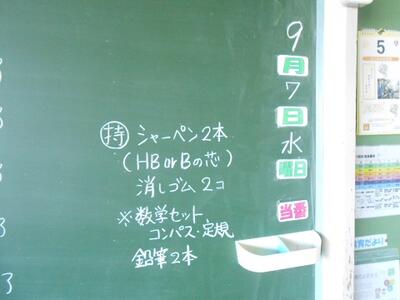 9
月
7
日
水
曜日
当番
持 シャーペン2本
(HB or Bの芯)
消しゴム2コ
※数学セット
コンパス・定規
鉛筆2本
5